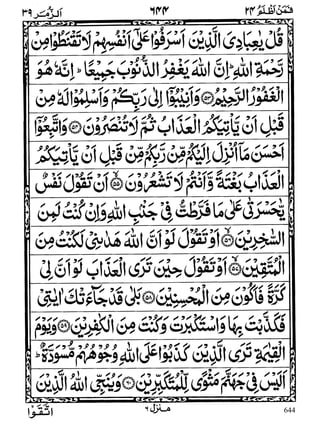 الزمر ٣٩ ٦٤٤ فمن اظلم ٢٤
قُلْ يٰعِبَادِيَ الَّذِيْنَ اَسْرَفُوْا عَلٰٓى اَنْفُسِهِمْ لَا تَقْنَطُوْا مِنْ
رَّحْمَةِ اللّٰهِ ؕ اِنَّ اللّٰهَ يَغْفِرُ الذُّنُوْبَ جَمِيْعًا ؕ اِنَّهٗ هُوَ
الْغَفُوْرُ الرَّحِيْمُ ﴿۵۳﴾ وَاَنِيْبُوْٓا اِلٰى رَبِّكُمْ وَاَسْلِمُوْا لَهٗ مِنْ
قَبْلِ اَنْ يَّاْتِيَكُمُ الْعَذَابُ ثُمَّ لَا تُنْصَرُوْنَ ﴿۵۴﴾ وَاتَّبِعُوْٓا
اَحْسَنَ مَآ اُنْزِلَ اِلَيْكُمْ مِّنْ رَّبِّكُمْ مِّنْ قَبْلِ اَنْ يَّاْتِيَكُمُ
الْعَذَابُ بَغْتَةً وَّاَنْتُمْ لَا تَشْعُرُوْنَ ﴿۵۵﴾ اَنْ تَقُوْلَ نَفْسٌ
يّٰحَسْرَتٰى عَلٰى مَا فَرَّطْتُّ فِيْ جَنْۢبِ اللّٰهِ وَاِنْ كُنْتُ لَمِنَ
السّٰخِرِيْنَ ﴿۵۶﴾ اَوْ تَقُوْلَ لَوْ اَنَّ اللّٰهَ هَدٰىنِيْ لَكُنْتُ مِنَ
الْمُتَّقِيْنَ ﴿۵۷﴾ اَوْ تَقُوْلَ حِيْنَ تَرَى الْعَذَابَ لَوْ اَنَّ لِيْ
كَرَّةً فَاَكُوْنَ مِنَ الْمُحْسِنِيْنَ ﴿۵۸﴾ بَلٰى قَدْ جَآءَتْكَ اٰيٰتِيْ
فَكَذَّبْتَ بِهَا وَاسْتَكْبَرْتَ وَكُنْتَ مِنَ الْكٰفِرِيْنَ ﴿۵۹﴾ وَيَوْمَ
الْقِيٰمَةِ تَرَى الَّذِيْنَ كَذَبُوْا عَلَى اللّٰهِ وُجُوْهُهُمْ مُّسْوَدَّةٌ ؕ
اَلَيْسَ فِيْ جَهَنَّمَ مَثْوًى لِّلْمُتَكَبِّرِيْنَ ﴿۶۰﴾ وَيُنَجِّي اللّٰهُ الَّذِيْنَ
اتَّقَوْا منزل ٦ 644